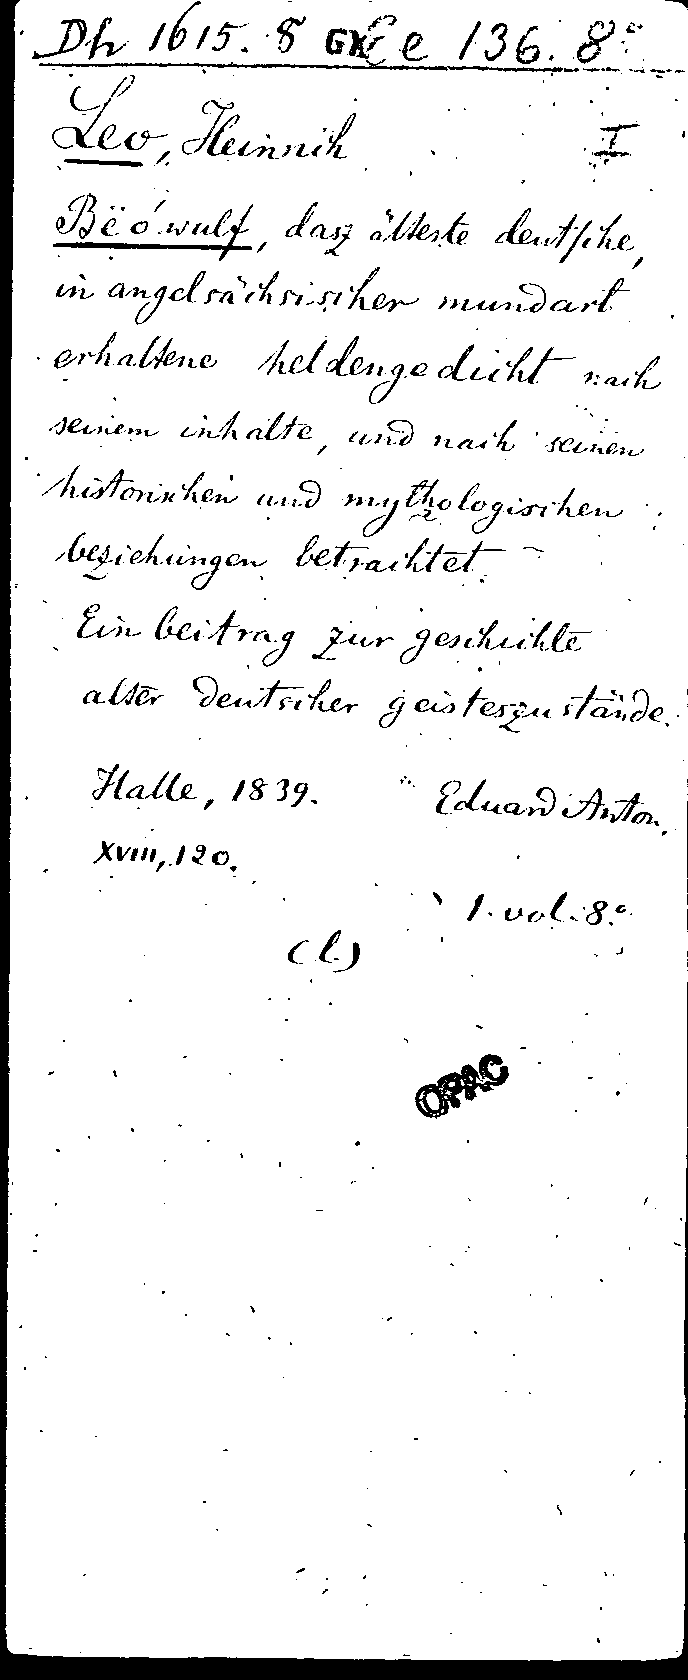 Dh 1615.8 GK Ee 136. 8°
Leo, Heinrich I
Bëówulf, dasz älteste deutsche,
in angelsächsischer mundart
erhaltene heldengedicht nach
seinem inhalte, und nach seinen
historischen und mythologischen
beziehungen betrachtet.
Ein beitrag zur geschichte
alter deutscher geisteszustände.
Halle, 1839. Eduard Anton.
XVIII, 120.
1. vol. 8°
(l.)
OPAC